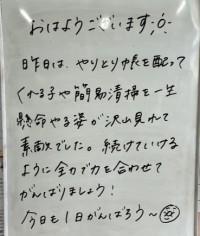 おはようございます
昨日は、やりとり帳を配って
くれる子や簡易清掃を一生
懸命やる姿が沢山見れて
素敵でした。続けていける
ように全力で力を合わせて
がんばりましょう!
今日も1日がんばろう〜